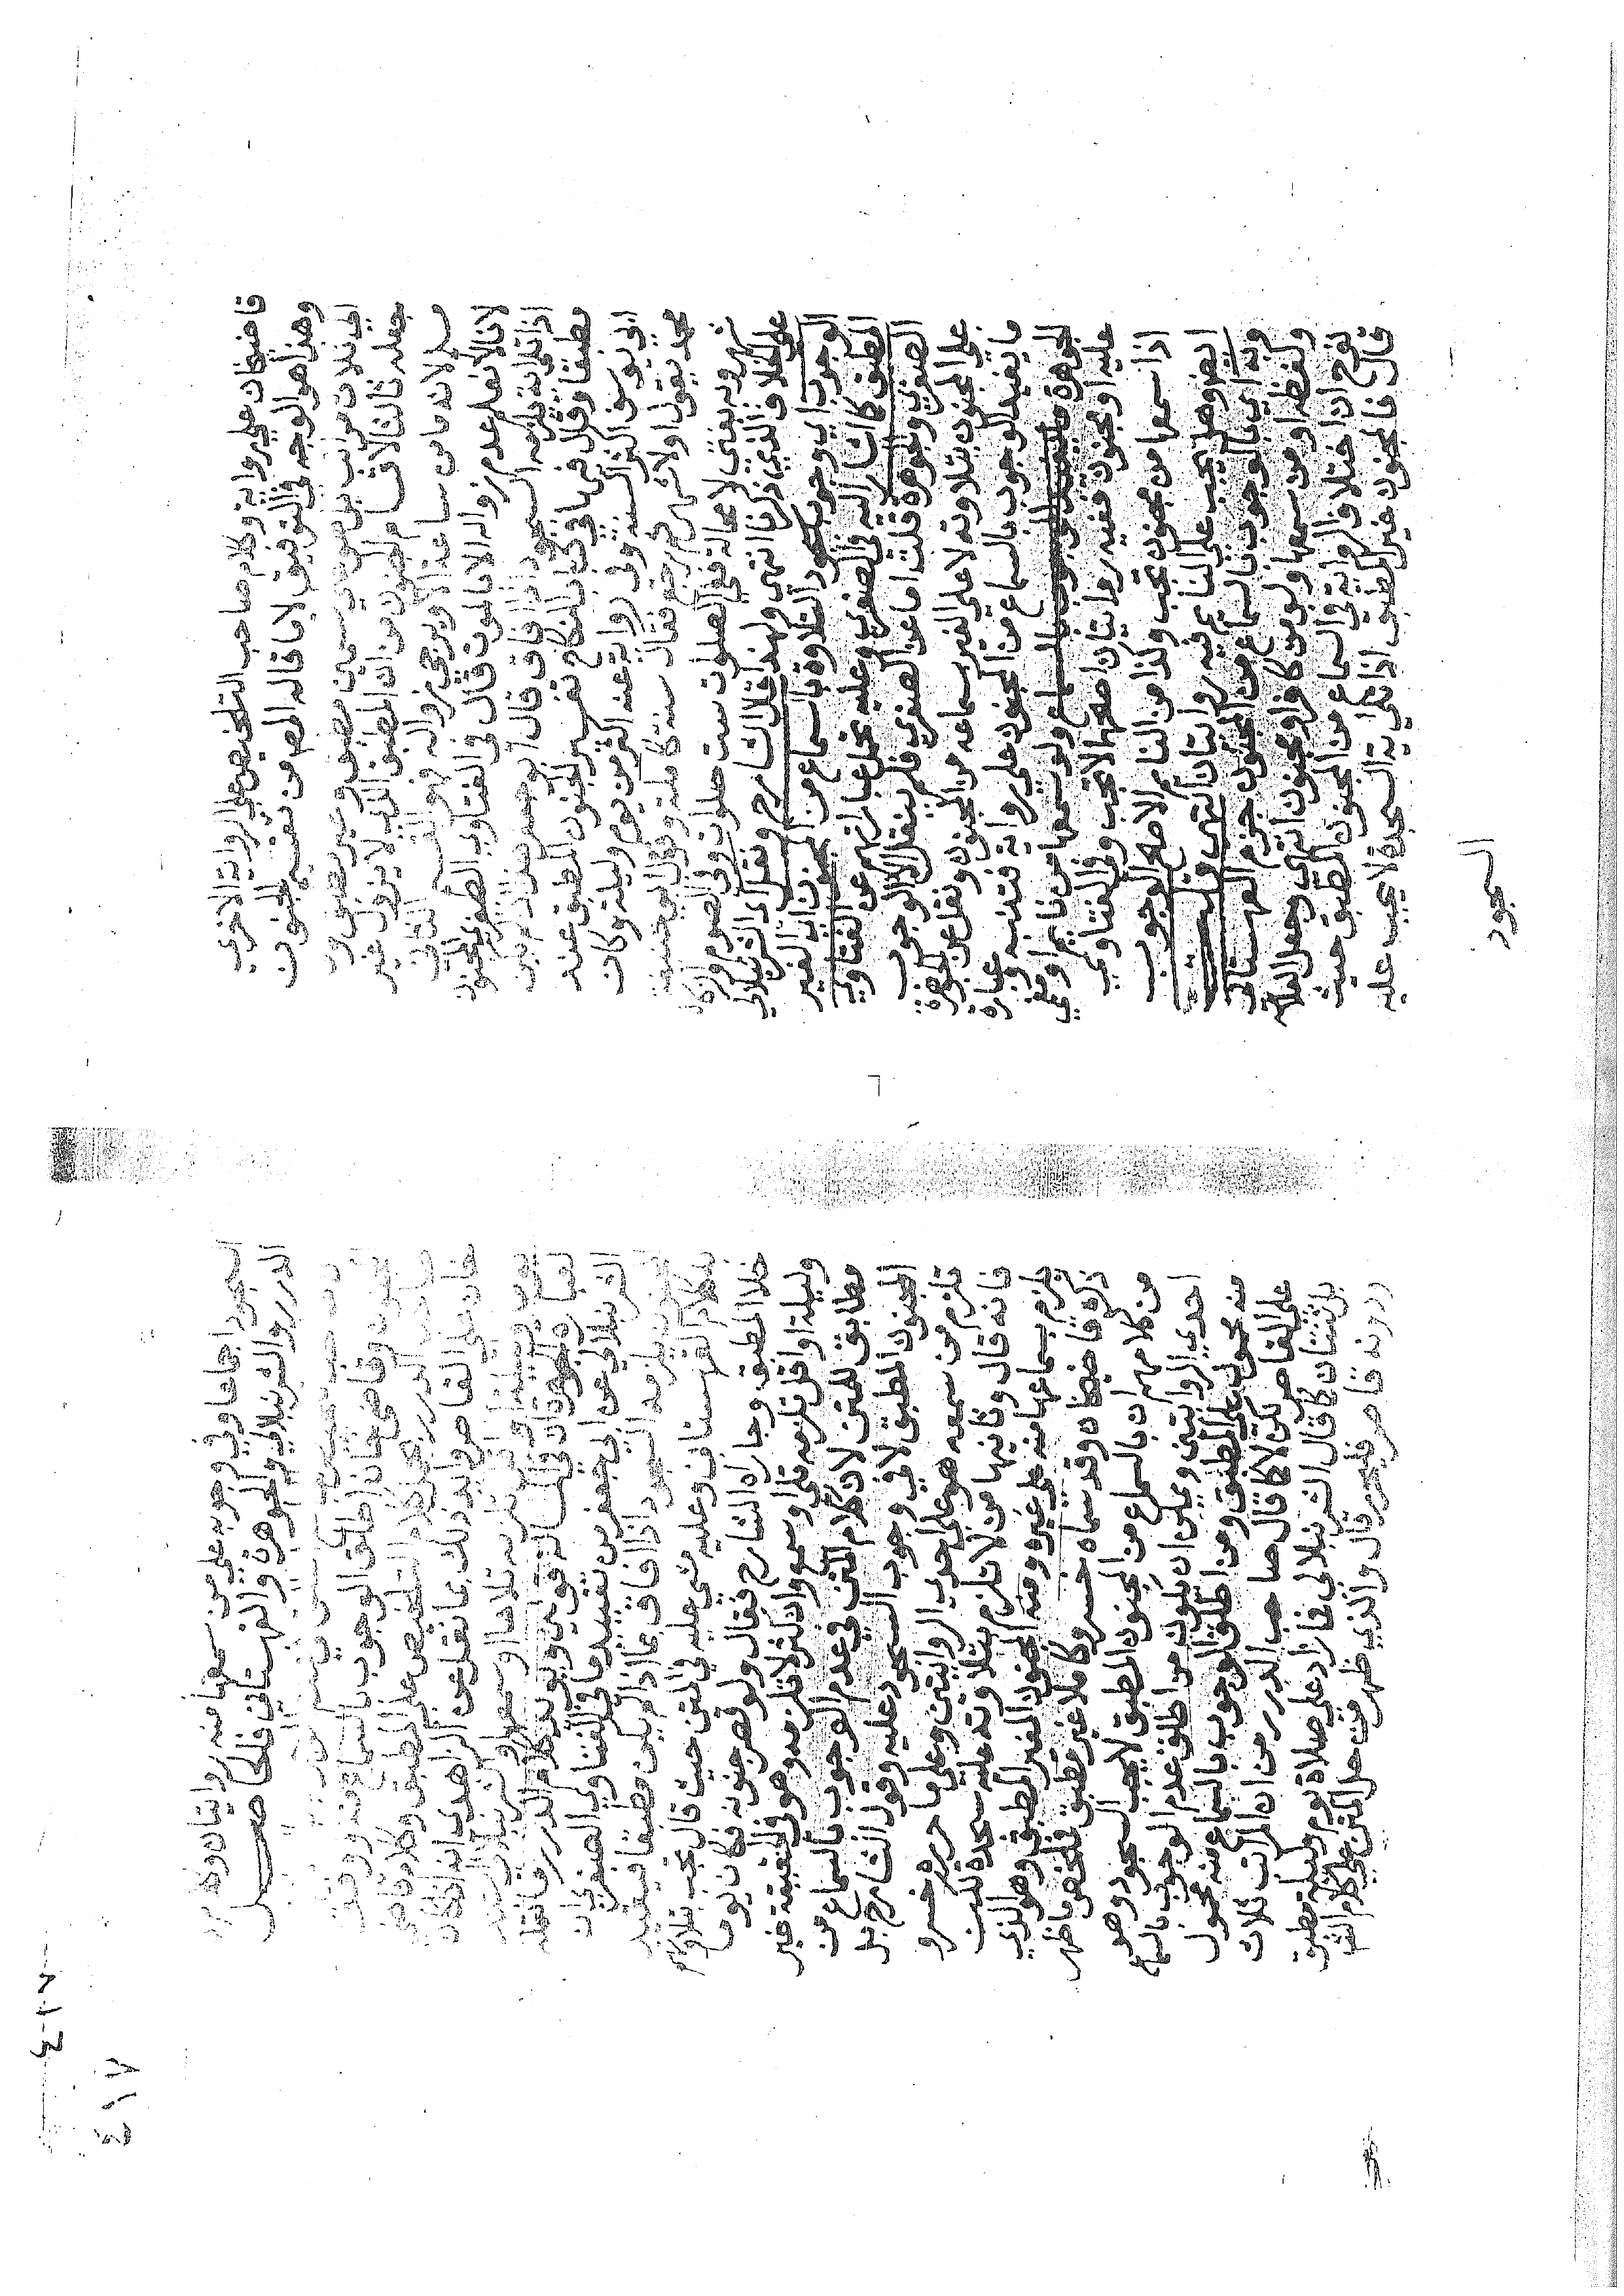 قاضيخان على رواية وكلام صاحب التلخيص على الرواية الاخرى
وهذا هو الوجه في التوفيق لا ما قاله المص من تقسيم الجنون
الى ثلاث مراتب بل هو قسمين مطبق وغير مطبق وما
جعله ثالثا لاقسام الجنون من ان المطبق الذي لا يزول غير
مسلم لانه ما من ساعة الا ويرجى زواله فهو القسم الثاني
لانا لا نعلم عدم زواله الا بالموت قال في الفتاوى الصغرى الجنون
اذا تلى اية يلزمه السجود اذا افاق قال ابو جعفر هذا اذا لم يكن
مطبقا وقال في باقي كتاب النكاح تفسير الجنون المطبق عند
ابي يوسف اكثر السنة وفي رواية عنه اكثر من يوم وليلة وكان
محمد يقول اولا شهر ثم رجع فقال سنة كاملة وقول ابو حنيفة
شهر وبه يفتى لا محالة ففي الصلوات ست صلوات وفي الصوم والزكاة
على الخلاف الذي ذكرنا انتهى ولهذا قال الشارح ونقل اي الشرنبلالي
الوجوب اي وجوب سجود التلاوة بالسماع من المجنون اي الغير
المطبق كما اشار اليه في الصغرى وعليه تحمل عبارتهم عن الفتاوى
الصغرى والجوهرة قلت اما عن الصغرى فلم ينقل الا الوجوب
على المجنون بتلاوته لا على الغير بسماعه من المجنون ونقل عن الجوهرة
ما يفيد الوجوب بالسماع من المجنون على رواية فتنبه وعبارة
الجوهرة ما يفيد الوجوب بالسماع ولو سمعها من نايم او مغمى
عليه او مجنون ففيه روايتان اصحها لا تجب وفي الفتاوى
اذا سمعها من مجنون تجب وكذا من النائم الاصح الوجوب
ايضا وهل يجب على النايم فيه روايتان انتهى قلت
وبه اي بالوجوب بالسماع من المجنون جزم القهستاني
ولفظه او من سمعها ولو من كافر او مجنون انتهى وجعل العلامة
نوح ان اختلاف الرواية في السماع من المجنون المطبق حيث
قال فالمجنون غير المطبق اذا تلى اية السجدة لا يجب عليه
السجود
السجود اجماعا وفي وجوبه على من سمعها منه روايتان وكلام
الدرر والشرنبلالي والجوهرة والقهستاني
وقاضيخان اطلق الوجوب بالسماع منه ووفق
الدرر بحمل كلام التلخيص على المطبق وكلام قاضي
خان على القاصر وايد ذلك بما نقل عن الزاهدي انه ان كان
عبارة الجوهرة ان في المسالة قولين ويؤيد كلام الدرر ما نقله
الشرنبلالي عن ابي جعفر من تقييد ما في الفتاوى الصغرى بان
يلزمه السجود اذا افاق بما اذا لم يكن مطبقا فيقيد
كلام القهستاني وعليه مشى عليه في المتن حيث قال تجب بتلاوتهم
خلا المطبق وجاراه الشارح فقال ولو قصر جنونه فكان يوم
وليلة او اقل تلزمه تلى او سمع وان اكثر لا تلزمه وهو في الحقيقة غير
مطابق للمتن لان كلام المتن في عدم الوجوب بالسماع من
المجنون المطبق لا في وجوب السجود عليه وقول الشارح بل
تلزم من سمعه هو على احدى الروايتين وعلى ما حرره خسرو
فانه قال وثانيها من لا تلزم بتلاوته عليه سجدة لكن
تلزم بسماعها منه على غيره ومنه المجنون الغير المطبق وهو الذي
ذكره قاضيخان وقد سماه خسرو كاملا غير مطبق فتلخص ما ظهر
من كلامهم ان بالسماع من المجنون المطبق لا يجب السجود وهو
احدى الروايتين ويمكن ان يكون من اطلق عدم الوجوب بالسماع
منه محمول على المطبق ومن اطلق الوجوب بالسماع منه محمول
على القاصر لكن لا كما قال صاحب الدرر من ان المراتب ثلاث
بل ثنتان كما قال الشرنبلالي فما زاد على صلاة يوم وليلة مطبق
ودونه قاصر فليحرر قال والذي ظهر من حل المتن على كلام
٤١٧